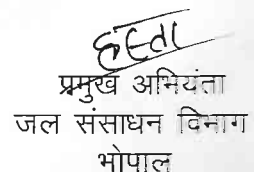 हस्ता
प्रमुख अभियंता
जल संसाधन विभाग
भोपाल